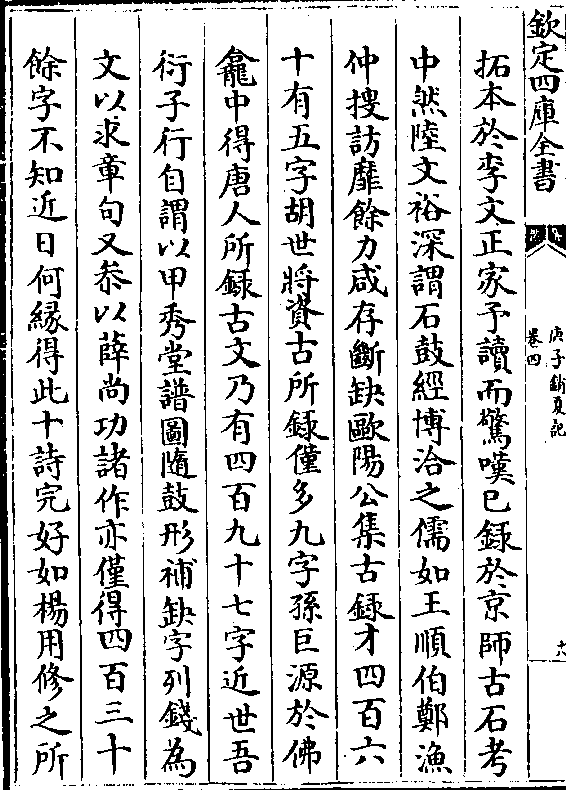 欽定四庫全書
庚子銷夏記
卷四
六
拓本於李文正家予讀而驚嘆已録於京師古石考
中然陸文裕深謂石鼓經博洽之儒如王順伯鄭漁
仲搜訪靡餘力咸存斷缺歐陽公集古録才四百六
十有五字胡世將資古所録僅多九字孫巨源於佛
龕中得唐人所録古文乃有四百九十七字近世吾
衍子行自謂以甲秀堂譜圖隨鼓形補缺字列錢為
文以求章句又叅以薛尚功諸作亦僅得四百三十
餘字不知近日何縁得此十詩完好如楊用修之所